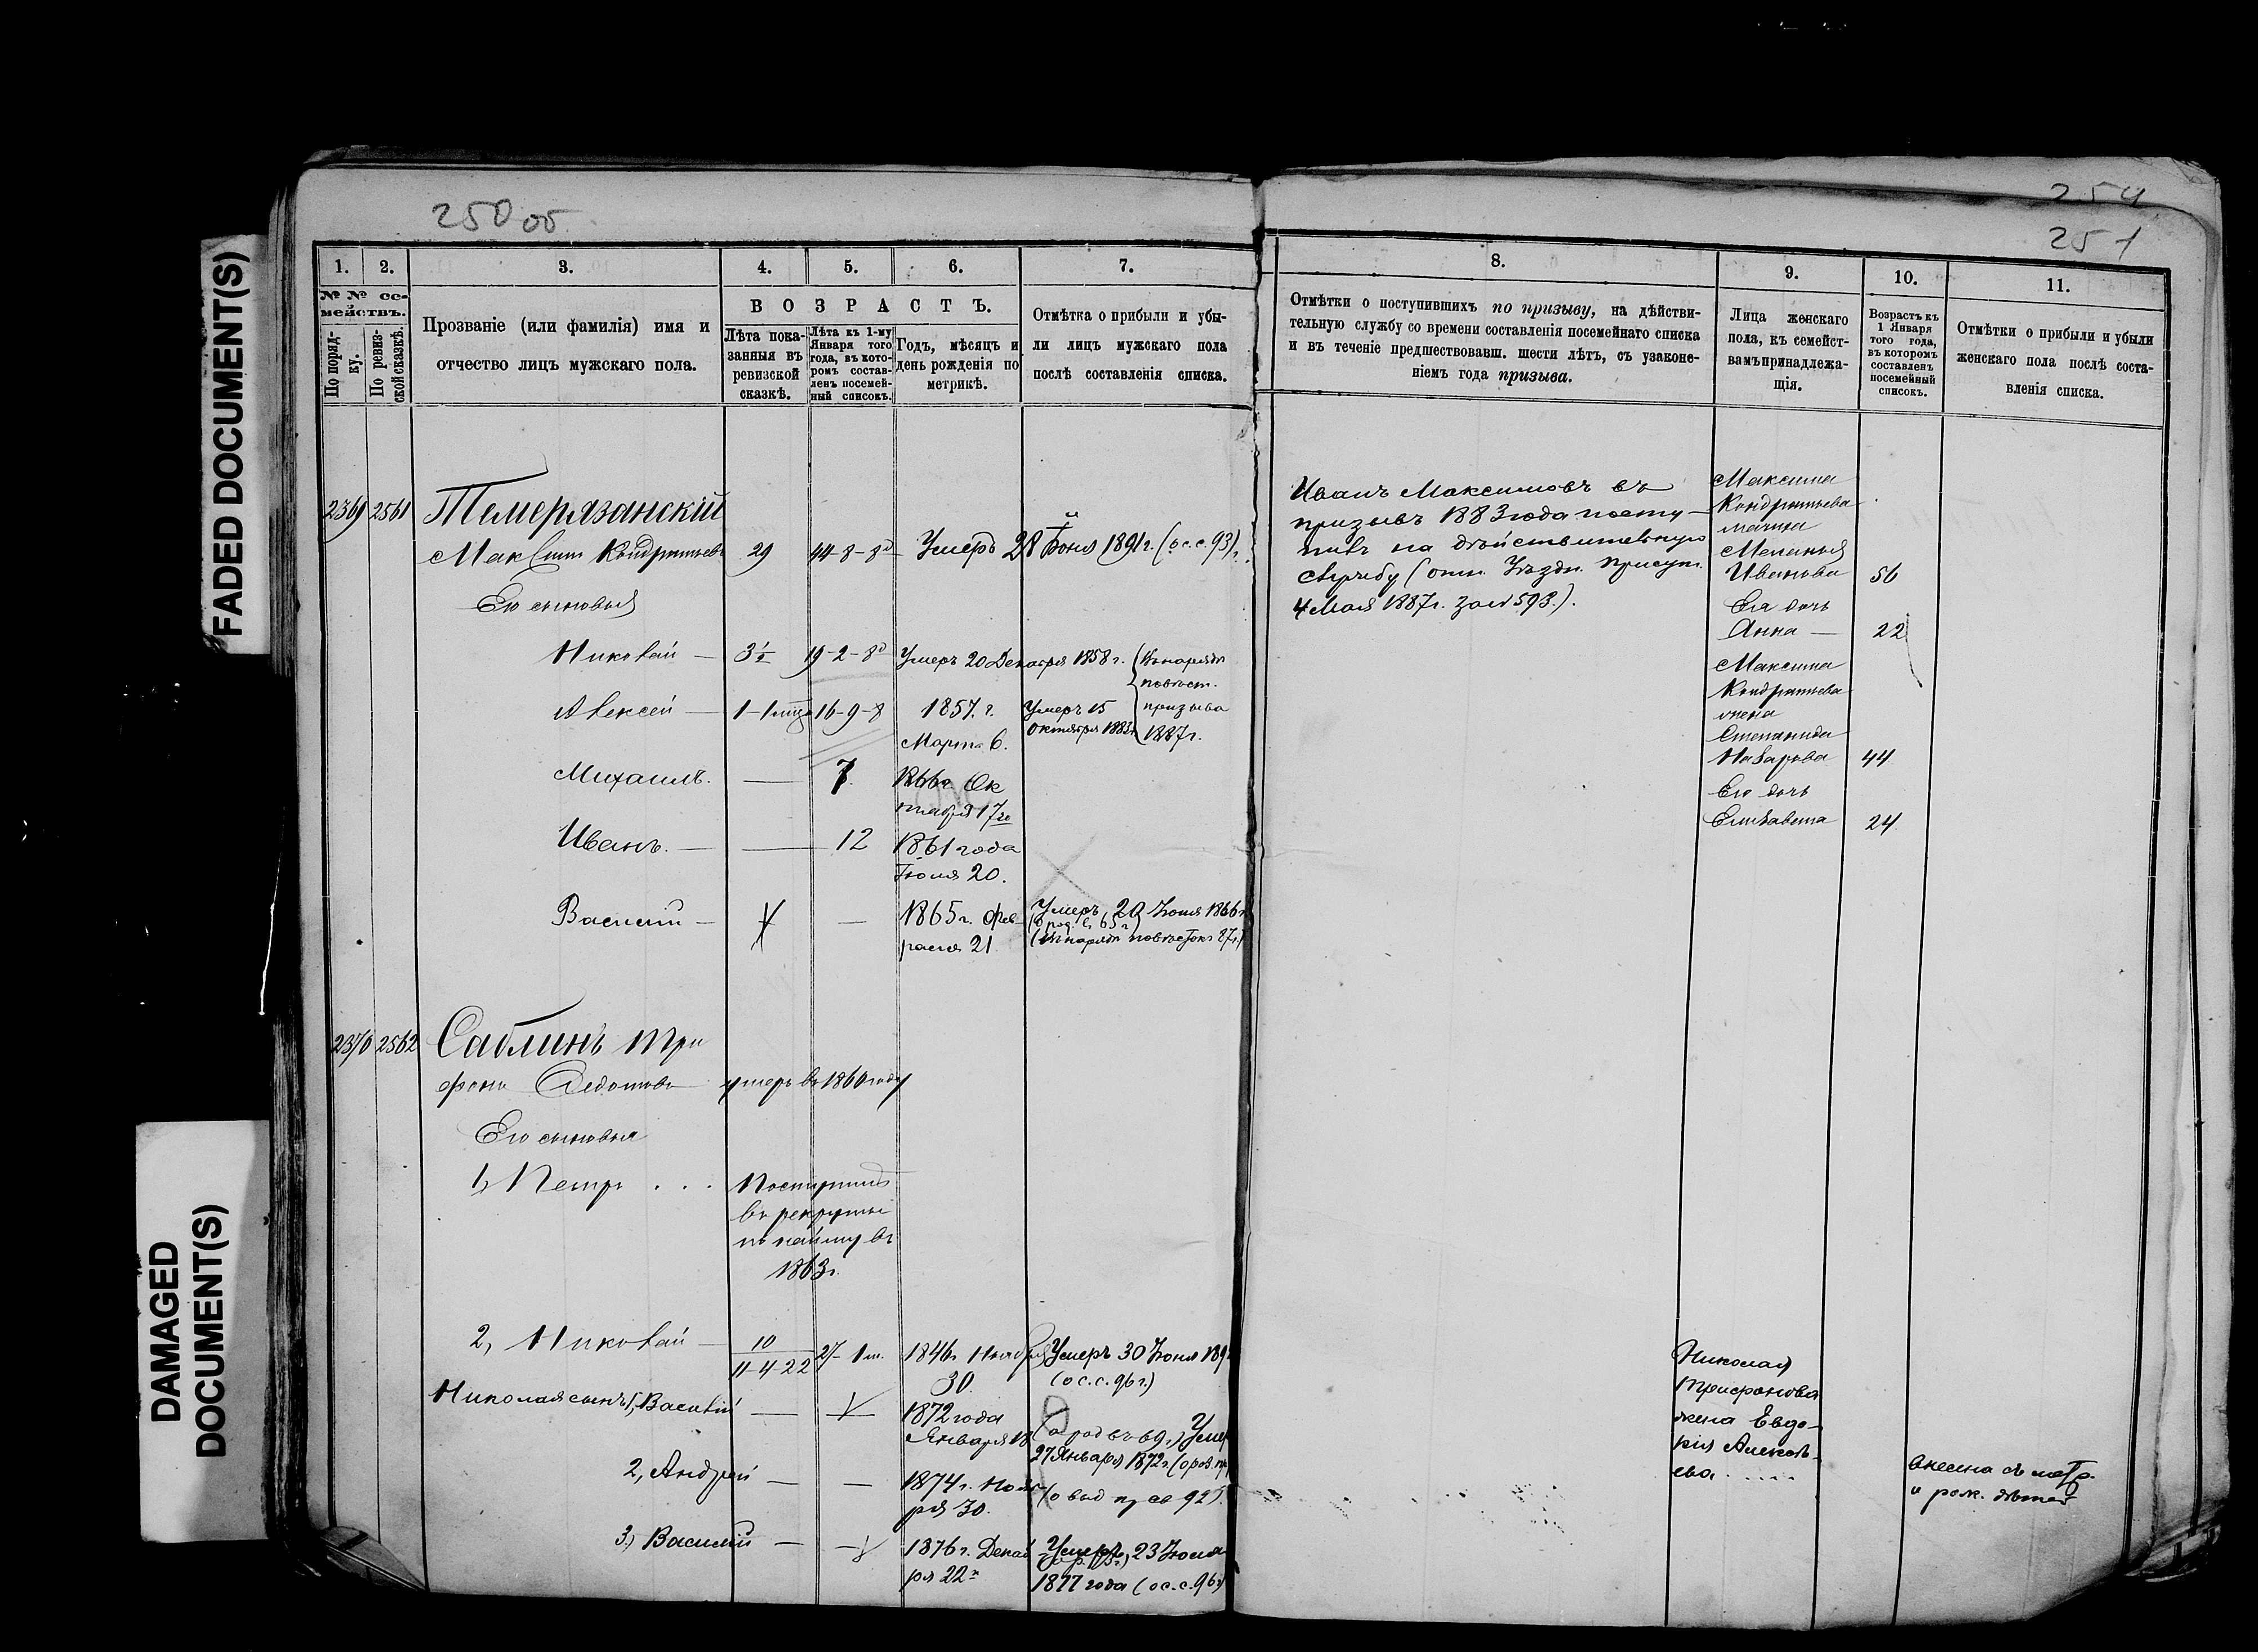 FADED DOCUMENT(S)
DAMAGED
DOCUMENT(S)
250 об
254
251
1.
2.
3.
4.
5.
6.
7.
№ № се-
мействъ.
По поряд-
ку.
По ревиз-
ской сказкѣ.
Прозваніе (или фамилія) имя и
отчество лицъ мужскаго пола.
ВОЗРАСТЪ.
Лѣта пока-
занныя въ
ревизской
сказкѣ.
Лѣта къ 1-му
Января того
года, въ кото-
ромъ состав-
ленъ посемей-
ный списокъ.
Годъ, мѣсяцъ и
день рожденія по
метрикѣ.
Отмѣтка о прибыли и убы-
ли лицъ мужскаго пола
послѣ составленія списка.
2369 2561 Темерязанскій
Максимъ Кондратьевъ 29 44-8-8д Умеръ 28й Іюня 1891г. (о с.с. 93)
Его сыновья
Николай — 3½ 19-2-8д Умеръ 20 Декабря 1858 г.
Алексей — 1-1 16-9-8 1857. г.
Марта 6.
Умеръ 15
октября 1883г.
повѣст.
призыва
1887г.
Михаилъ. — 7. 1866г. Ок
тября 17го
Иванъ. — 12 1861 года
Іюля 20.
Василій — — 1865г. Фев
раля 21.
Умеръ 20 Іюля 1866г
2370 2562 Саблинъ Три
фонъ Федотовъ умеръ въ 1860 году
Его сыновья
1, Петръ . . . Поступилъ
въ рекруты
по найму въ
1863г.
2, Николай — 10
11-4-22 27-1м. 1846г. Ноября
30.
Умеръ 30 Іюня 189
(о с.с. 96 г.)
Николая сынъ 1, Василій — — 1872 года
Января 18
(о род въ 69г.) Умер
27 Января 1872г.
2, Андрей — — 1874г. Нояб
ря 30.
3) Василій — — 1876г. Декаб
ря 22го
Умеръ 23 Іюля
1877 года (о с.с. 96г)
8.
9.
10.
11.
Отмѣтки о поступившихъ по призыву, на дѣйстви-
тельную службу со времени составленія посемейнаго списка
и въ теченіе предшествовавш. шести лѣтъ, съ узаконе-
ніемъ года призыва.
Лица женскаго
пола, къ семейст-
вамъ принадлежа-
щія.
Возрастъ къ
1 Января
того года,
въ которомъ
составленъ
посемейный
списокъ.
Отмѣтки о прибыли и убыли
женскаго пола послѣ соста-
вленія списка.
Иванъ Максимовъ въ
призывъ 1883 года посту-
пилъ на дѣйствительную
службу (отн. Уѣздн. Присут.
4 Мая 1887г. за № 593.).
Максима
Кондратьева
мачиха
Меланья
Иванова 56
Ея дочь
Анна — 22
Максима
Кондратьева
жена
Степанида
Назарова 44
Его дочь
Елизавета 24
Николая
Трифонова
жена Евдо-
кія Алексѣ-
ева . . . .